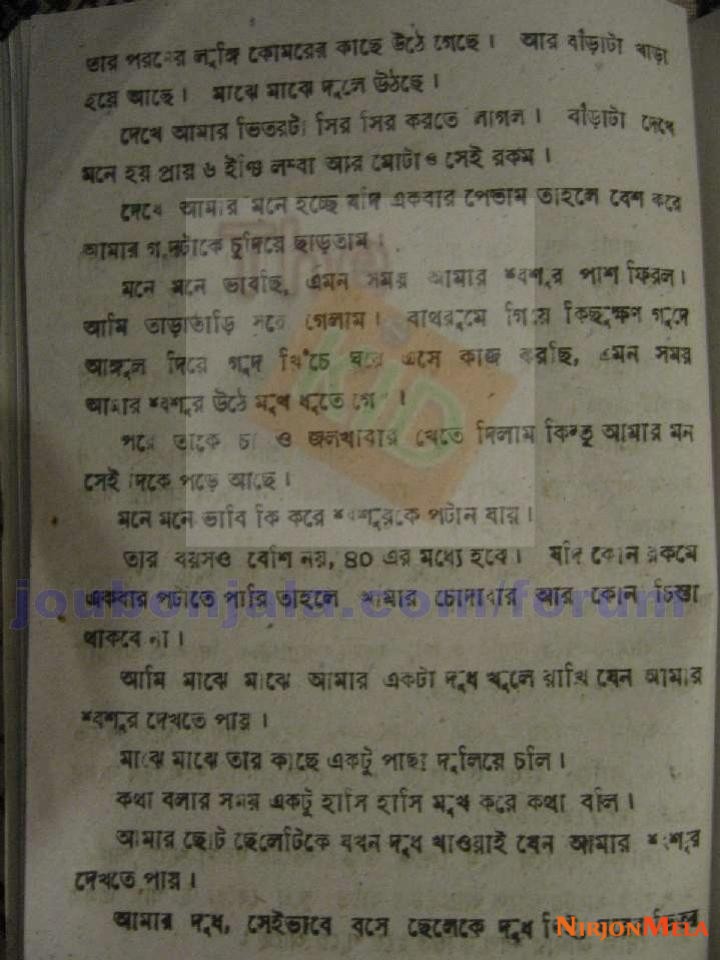 তার পরনের লুঙ্গি কোমরের কাছে উঠে গেছে। আর বাঁড়াটা খাড়া
হয়ে আছে। মাঝে মাঝে দুলে উঠছে।
দেখে আমার ভিতরটা সির সির করতে লাগল। বাঁড়াটা দেখে
মনে হয় প্রায় ৬ ইঞ্চি লম্বা আর মোটাও সেই রকম।
দেখে আমার মনে হচ্ছে যদি একবার পেতাম তাহলে বেশ করে
আমার গুদটাকে চুদিয়ে ছাড়তাম।
মনে মনে ভাবছি, এমন সময় আমার শ্বশুর পাশ ফিরল।
আমি তাড়াতাড়ি সরে গেলাম। বাথরুমে গিয়ে কিছুক্ষণ গুদে
আঙ্গুল দিয়ে গুদ খিঁচে ঘরে এসে কাজ করছি, এমন সময়
আমার শ্বশুর উঠে মুখ ধুতে গেল।
পরে তাকে চা ও জলখাবার খেতে দিলাম কিন্তু আমার মন
সেই দিকে পড়ে আছে।
মনে মনে ভাবি কি করে শ্বশুরকে পটান যায়।
তার বয়সও বেশি নয়, ৪০ এর মধ্যে হবে। যদি কোন রকমে
একবার পটাতে পারি তাহলে আমার চোদাবার আর কোন চিন্তা
থাকবে না।
আমি মাঝে মাঝে আমার একটা দুধ খুলে রাখি যেন আমার
শ্বশুর দেখতে পায়।
মাঝে মাঝে তার কাছে একটু পাছা দুলিয়ে চলি।
কথা বলার সময় একটু হাসি হাসি মুখ করে কথা বলি।
আমার ছোট ছেলেটিকে যখন দুধ খাওয়াই যেন আমার শ্বশুর
দেখতে পায়।
আমার দুধ, সেইভাবে বসে ছেলেকে দুধ
The
KID
joubonjala.com/forum
NIRJONMELA